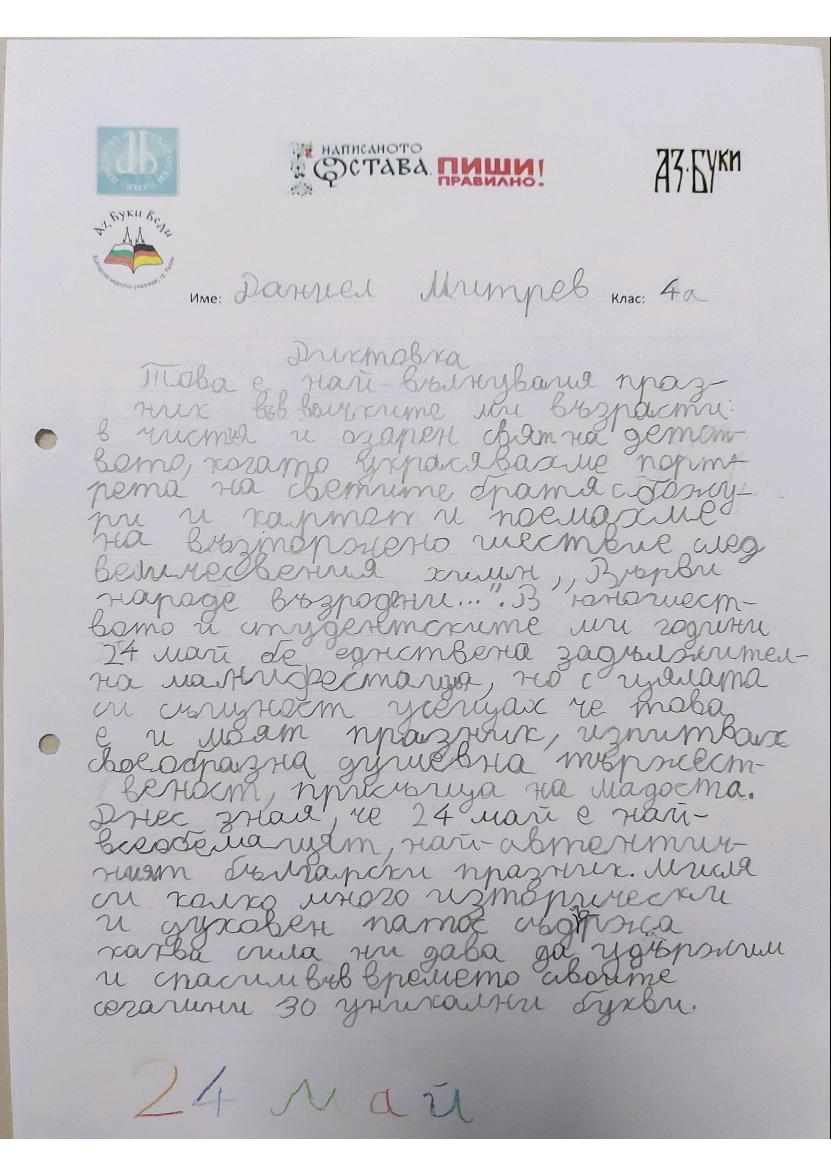 НАПИСАНОТО
ОСТАВА. ПИШИ
ПРАВИЛНО!
АЗ·БУКИ
Аз Буки Веди
Име: Даниел Митрев Клас: 4а
Диктовка
Това е най-вълнуващия праз-
ник във всичките ми възрасти:
в чистия и озарен свят на детст-
вото, когато украсявахме порт-
рета на светите братя с божу-
ри и картоп и поемахме
на възторжено шествие след
величесвения химн „Върви
народе възродени...". В юношест-
вото и студентските ми години
24 май бе единствена задължител-
на манифестация, но с цялата
си същност усещах че това
е и моят празник, изпитвах
своеобразна душевна тържест-
веност, присъща на мадоста.
Днес зная, че 24 май е най-
всеобемащият, най-автентич-
ният български празник. Мисля
си колко много изторически
и духовен патос съдържа
каква сила ни дава да удържим
и спасим във времето своите
сегашни 30 уникални букви.
24 май